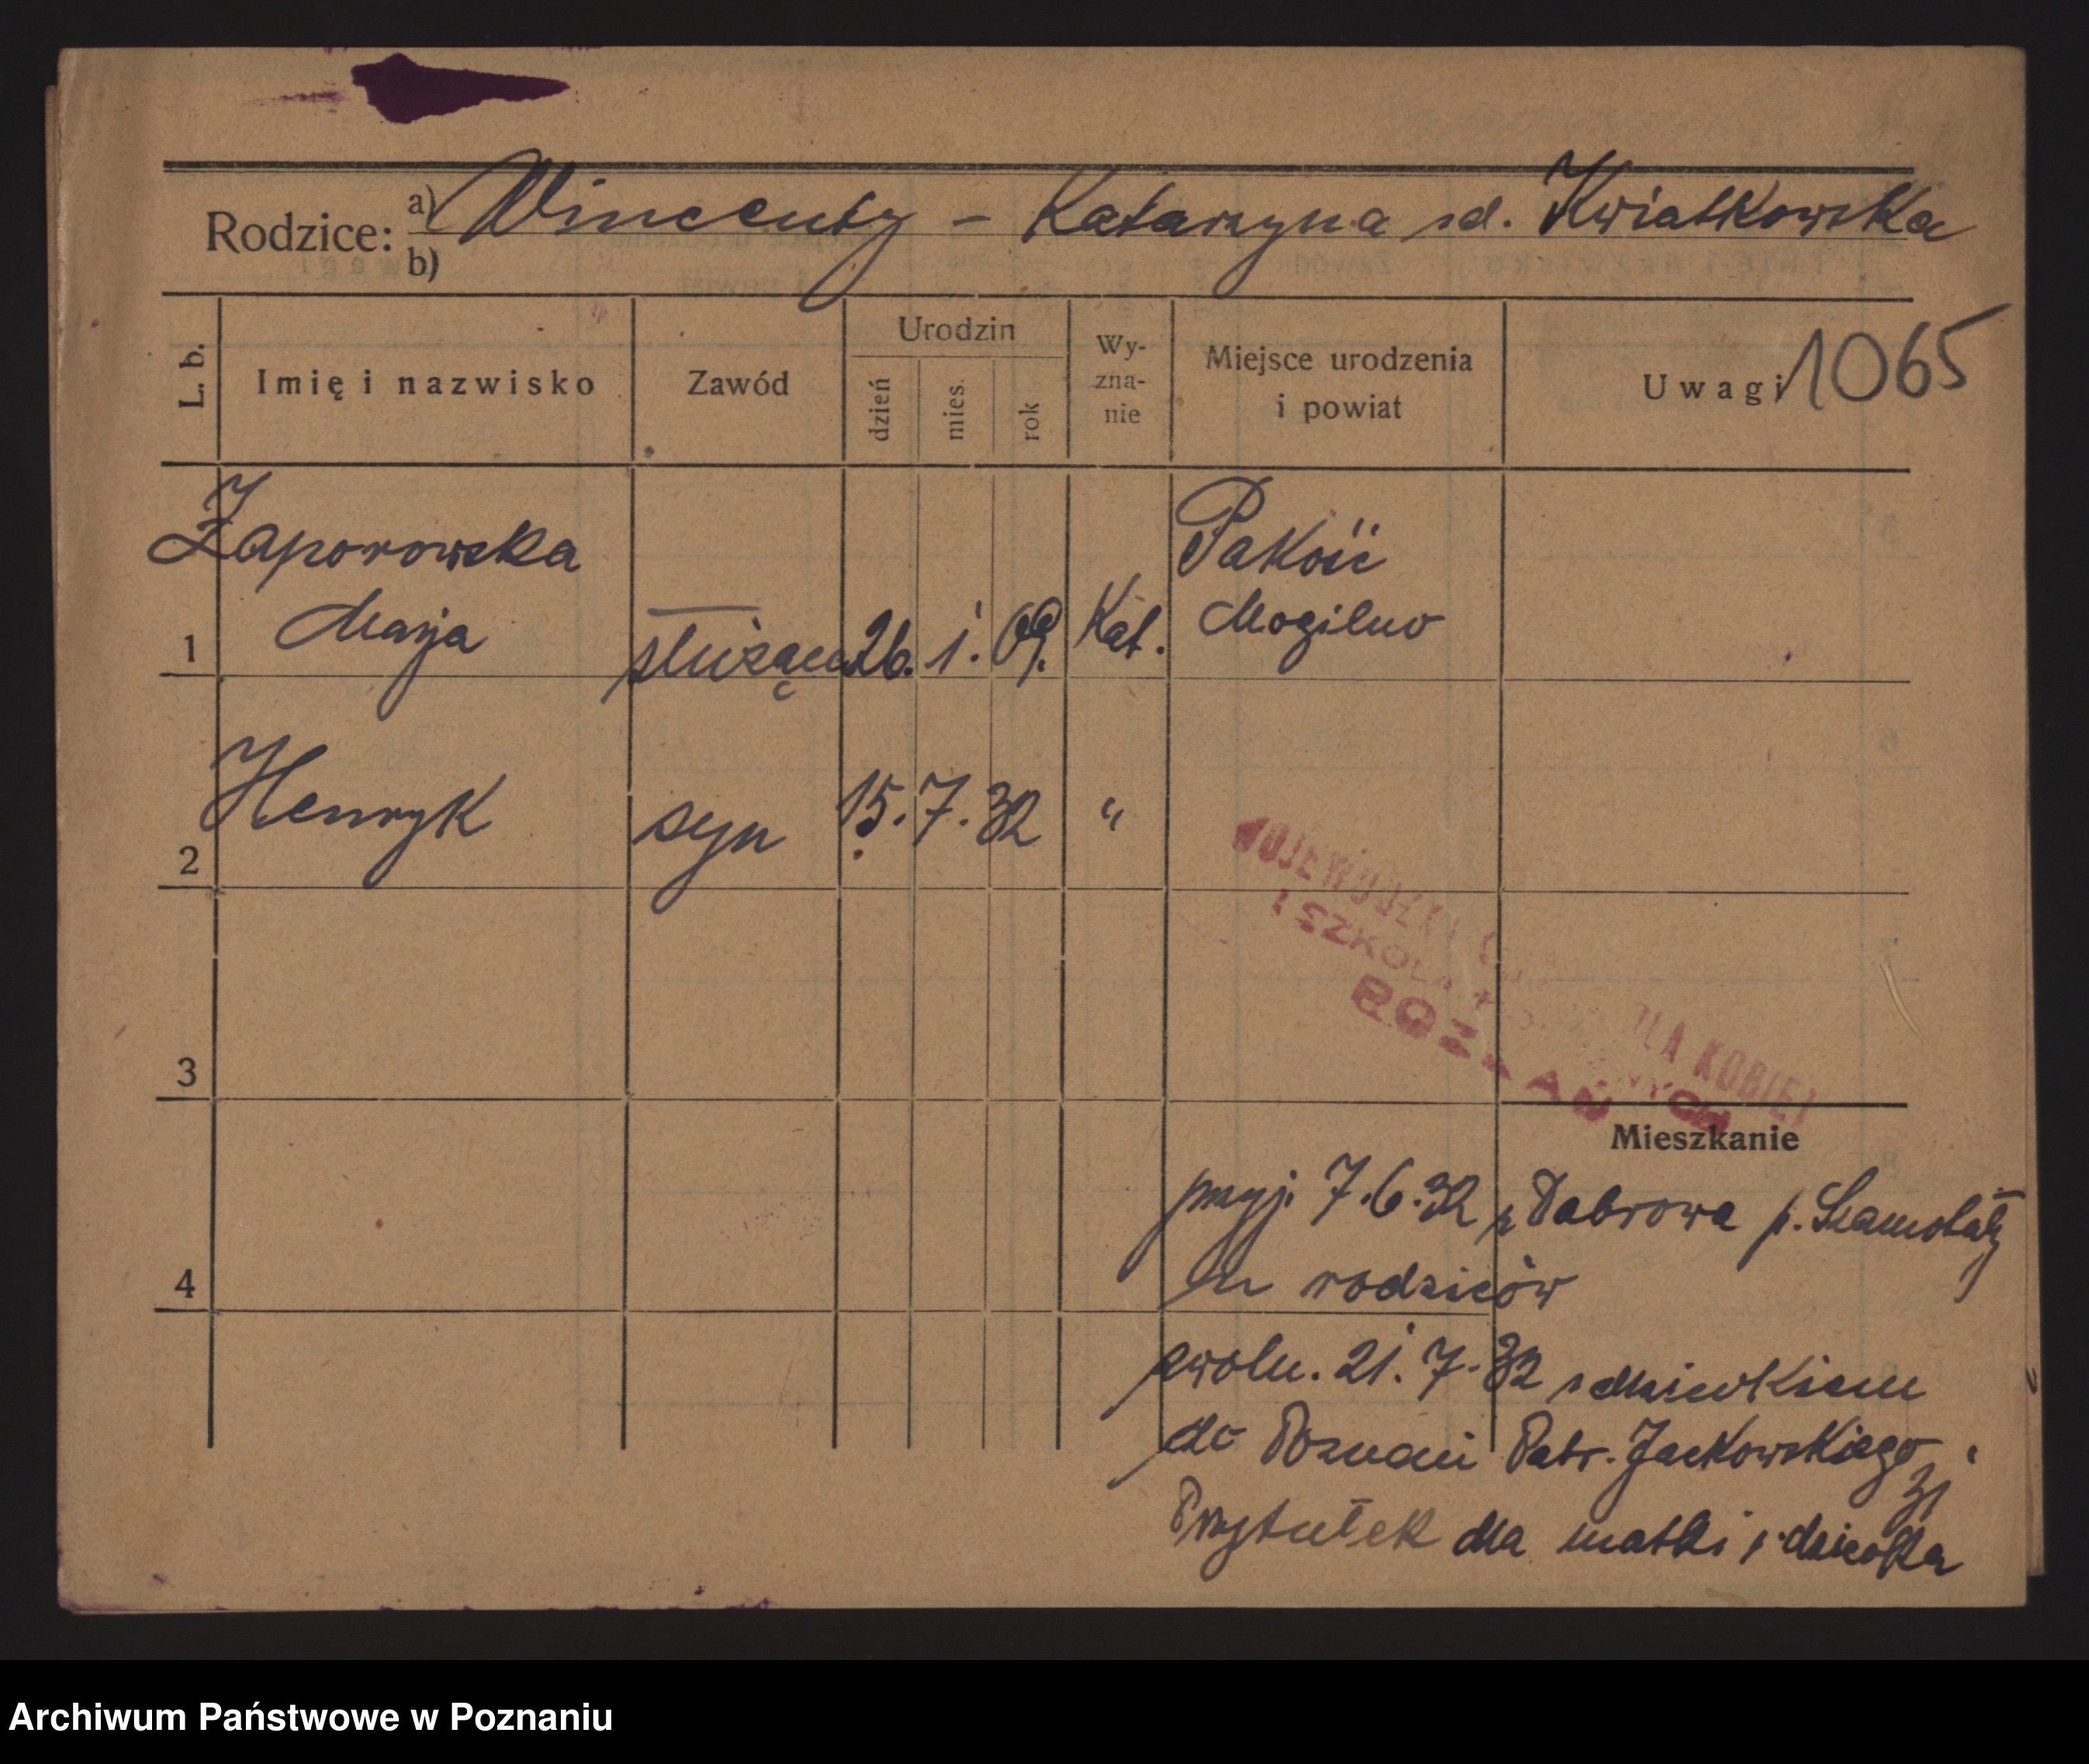 Rodzice: a) Wincenty - Katarzyna zd. Kwiatkowska
b)
L. b. Imię i nazwisko Zawód Urodzin dzień mies. rok Wy-zna-nie Miejsce urodzenia i powiat Uwagi 1065
Zaporowska Pakość
1 Marja służąca 26. 1. 09. Kat. Mogilno
2 Henryk syn 15. 7. 32 "
WOJEWÓDZKI DLA KOBIET
I SZKOŁA POŁOŻNYCH
POZNAŃ
3
Mieszkanie
przyj. 7.6.32 z Dabrowa p. Szamotuły
4 u rodziców
zwoln. 21. 7. 32 z dzieckiem
do Poznani Patr. Jackowskiego
31
Przytułek dla matki i dziecka
Archiwum Państwowe w Poznaniu